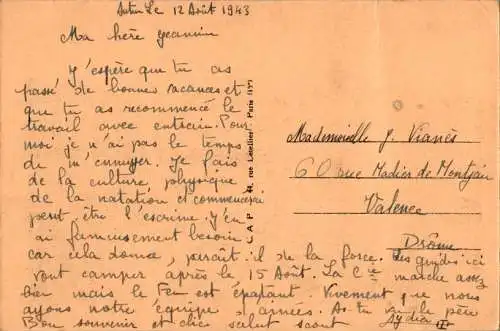 Le 12 Août 1943
Ma chère Jeannine
J'espère que tu as
passé de bonnes vacances et
que tu as recommencé le
travail avec entrain. Pour
moi je n'ai pas le temps
de m'ennuyer. Je fais
de la culture physique
de la natation et commencerai
peut être l'escrime. J'en
ai fameusement besoin
car cela donne, parait-il de la force. Les guides ici
vont camper après le 15 Août. La Cie marche assez
bien mais le Feu est épatant. Vivement que nous
ayons notre équipe d'ainées. As-tu vu le père
Bon souvenir et salut scout
C.A.P. 44, rue Letellier - Paris (15e)
Mademoiselle J. Vianès
60 rue Madier de Montjau
Valence
Drôme